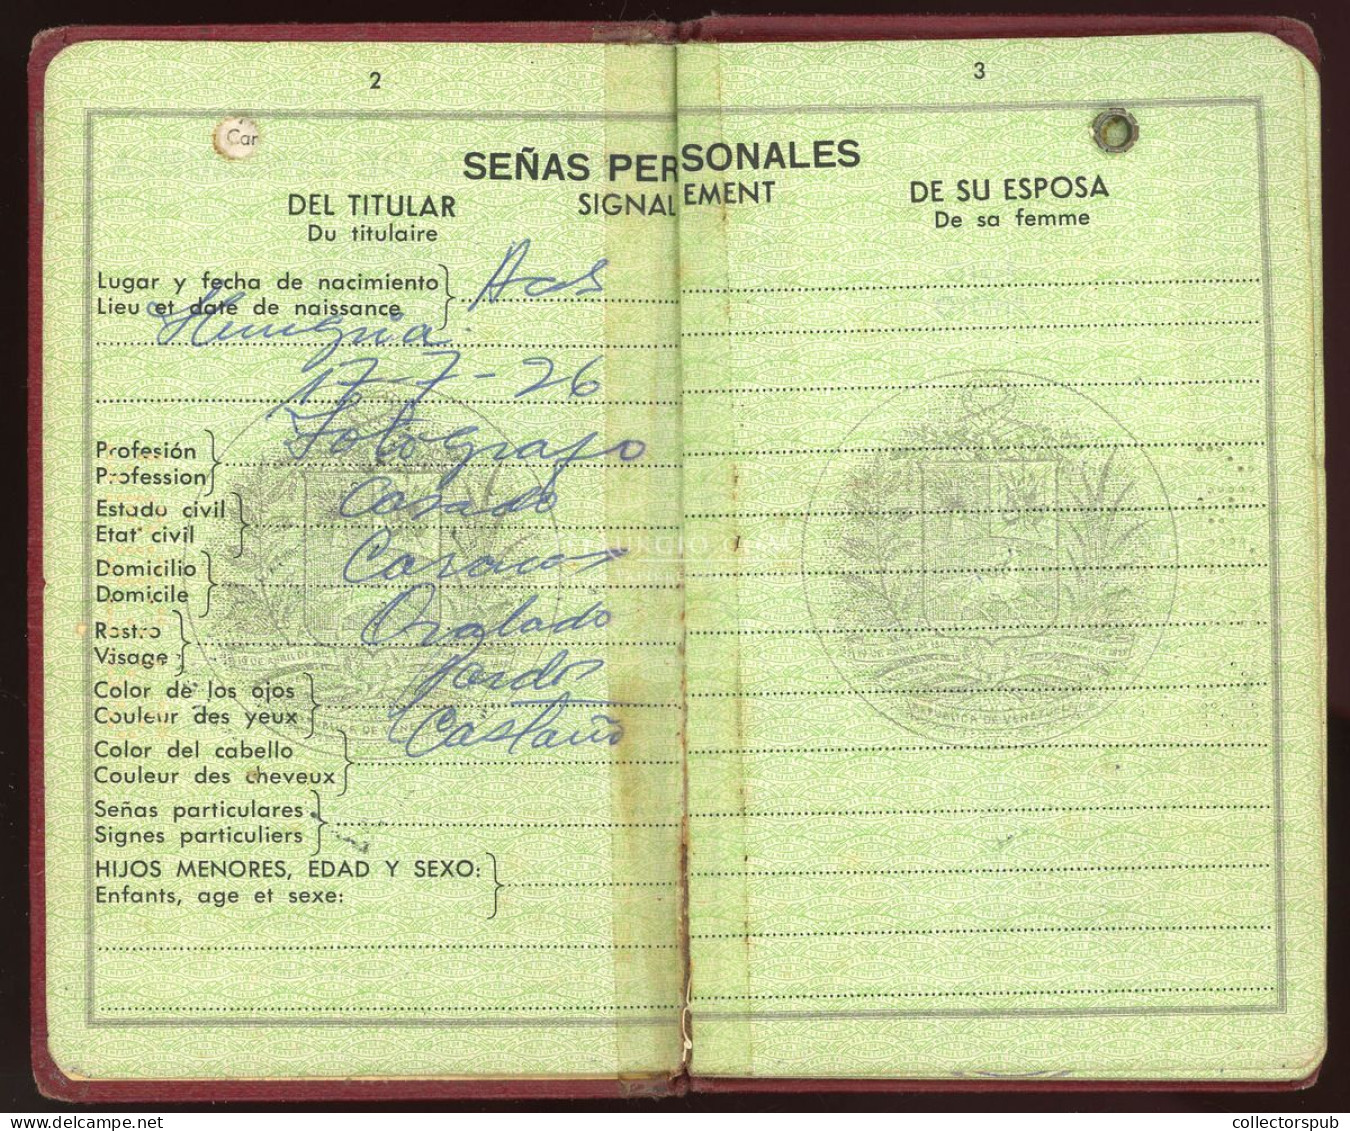 2
3
Car
SEÑAS PERSONALES
SIGNALEMENT
DEL TITULAR
Du titulaire
DE SU ESPOSA
De sa femme
Lugar y fecha de nacimiento
Lieu et date de naissance
Acs
Hungria.
17-7-26
Profesión
Profession
Fotografo
Estado civil
Etat civil
Casado
Domicilio
Domicile
Caracas
Rostro
Visage
Ovalado
Color de los ojos
Couleur des yeux
Pardos
Color del cabello
Couleur des cheveux
Castaño
Señas particulares
Signes particuliers
HIJOS MENORES, EDAD Y SEXO:
Enfants, age et sexe:
REPUBLICA DE VENEZUELA
collectorspub.com